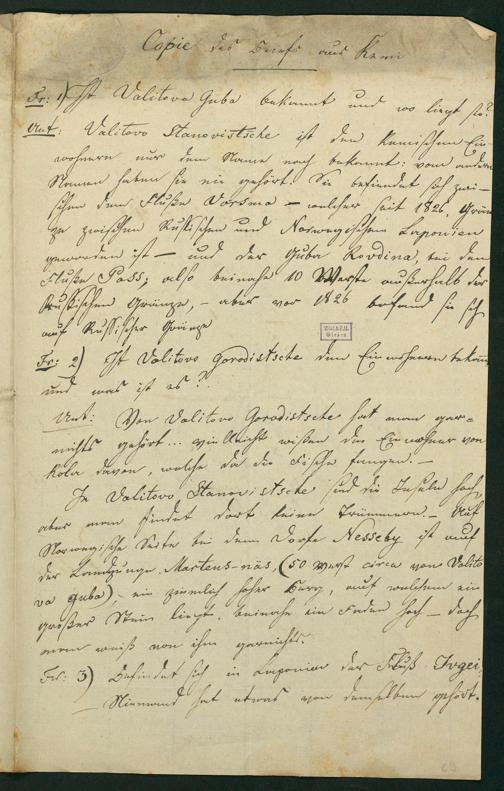 Copie des Briefs aus Kemi
Fr: 1) Ist Valitova Guba bekannt und wo liegt sie?
Ant: Valitovo Stanovistsche ist den Kemischen Ein-
wohnern nur dem Name nach bekannt: vom andern
Namen haben sie nie gehört. Sie befindet sich zwi-
schen dem Fluße Vorsma – welcher seit 1826 Grän-
ze zwischen Russischen und Norwegischen Laponien
geworden ist – und der Guba Rovdina, bei dem
Fluße Pass; also beinahe 10 Werste außerhalb der
Russischen Gränze, – aber vor 1826 befand sie sich
auf Russischer Gränze
Fr: 2) Ist Valitovo Gorodistsche den Einwohnern bekannt
und was ist es?
Ant: Von Valitovo Gorodistsche hat man gar-
nichts gehört... vielleicht wißen die Einwohner von
Kola davon, welche da die Fische fangen. –
In Valitovo Stanovistsche sind die Inseln hoch
aber man findet dort keine Trümmern – Auf
Norwegische Seite bei dem Dorfe Nesseby ist auf
der Landzunge Martens-näs (50 Werst circa von Valito
va guba) – ein ziemlich hoher Berg, auf welchem ein
großer Stein liegt, beinahe ein Faden hoch – doch
man weiß von ihm garnichts.
Fr: 3) Befindet sich in Laponien der Fluß Ivgei:
Niemand hat etwas von demselben gehört.